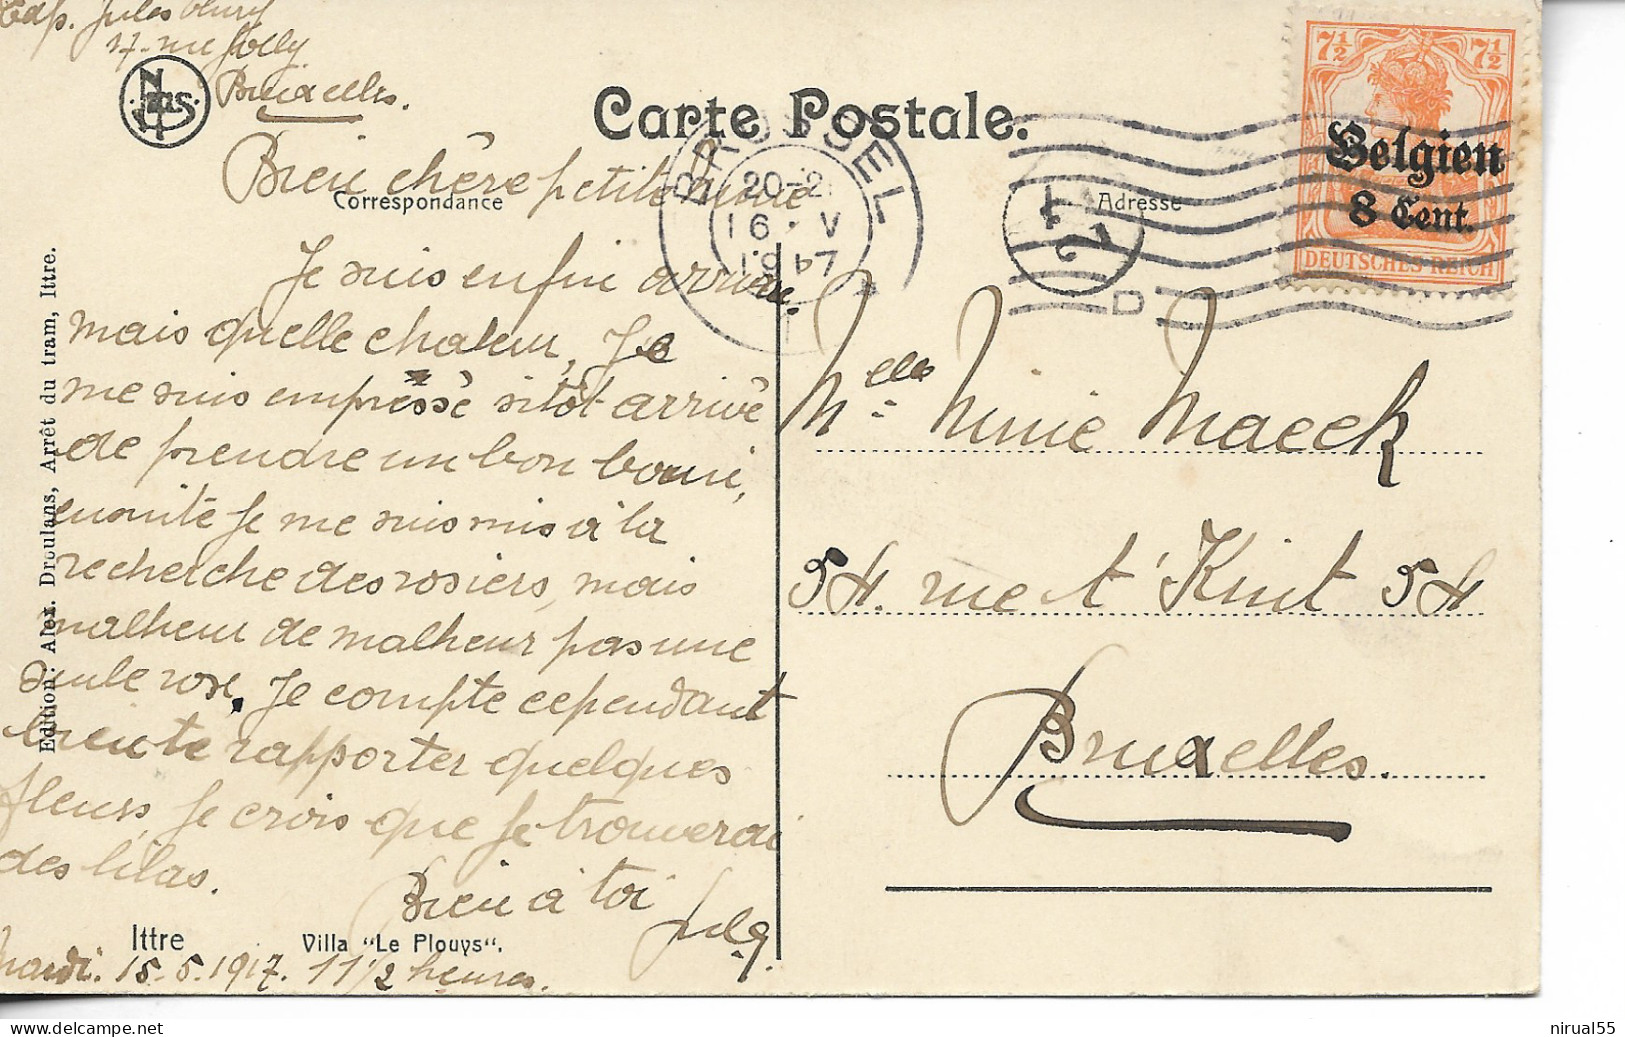 Exp. Jules
17. rue Jolly
Bruxelles.
Carte Postale.
Correspondance
Adresse
BRUSSEL
20-2
16. V
1917
7½ 7½
Belgien
8 Cent.
DEUTSCHES REICH
Bien chère petite Ninie
Je suis enfin arrivé.
mais quelle chaleur, Je
me suis empressé sitôt arrivé
de prendre un bon
ensuite je me suis mis à la
recherche des rosiers, mais
malheur de malheur pas une
seule rose. Je compte cependant
bien te rapporter quelques
fleurs, je crois que je trouverai
des lilas.
Bien à toi
Jules
Mardi. 15-5-1917. 11 1/2 heures.
Ittre Villa "Le Plouys".
Edition: Alex. Droulans, Arrêt du tram, Ittre.
Melle Ninie Maeck
54. rue t'Kint 54
Bruxelles.
nirual55